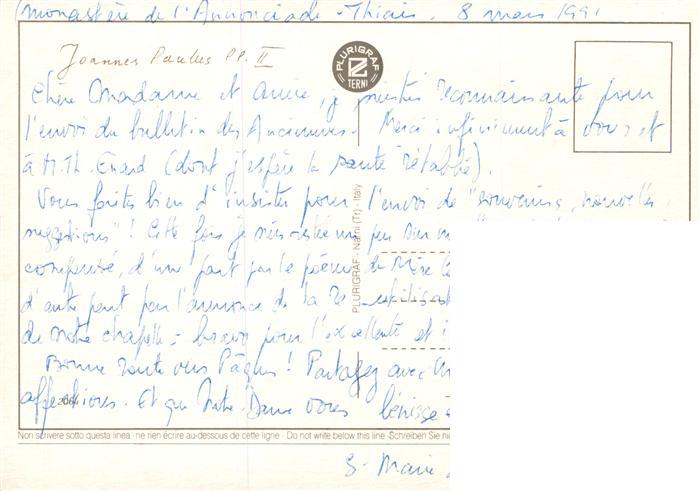 Monastère de l'Annonciade - Thiais. 8 mars 1991
Joannes Paulus PP. II
PLURIGRAF
TERNI
Chère Madame et amie, je reconnaissante pour
l'envoi du bulletin des Anciennes - Merci infiniment à vous et
à M.Th. Enard (dont j'espère la santé rétablie).
Vous faites bien d'insister pour l'envoi de "souvenirs, nouvelles,
suggestions"! Cette fois je suis restée un peu sur m
compensé, d'une part par le poème de Mère
d'autre part par l'annonce de la
de notre chapelle - bravo pour l'excellente et
Bonne route vers Pâques! Partagez avec
affections. Et que Notre-Dame vous bénisse
PLURIGRAF - Narni (Tr) - Italy
2064
Non scrivere sotto questa linea - ne rien écrire au-dessous de cette ligne - Do not write below this line - Schreiben Sie
S. Marie